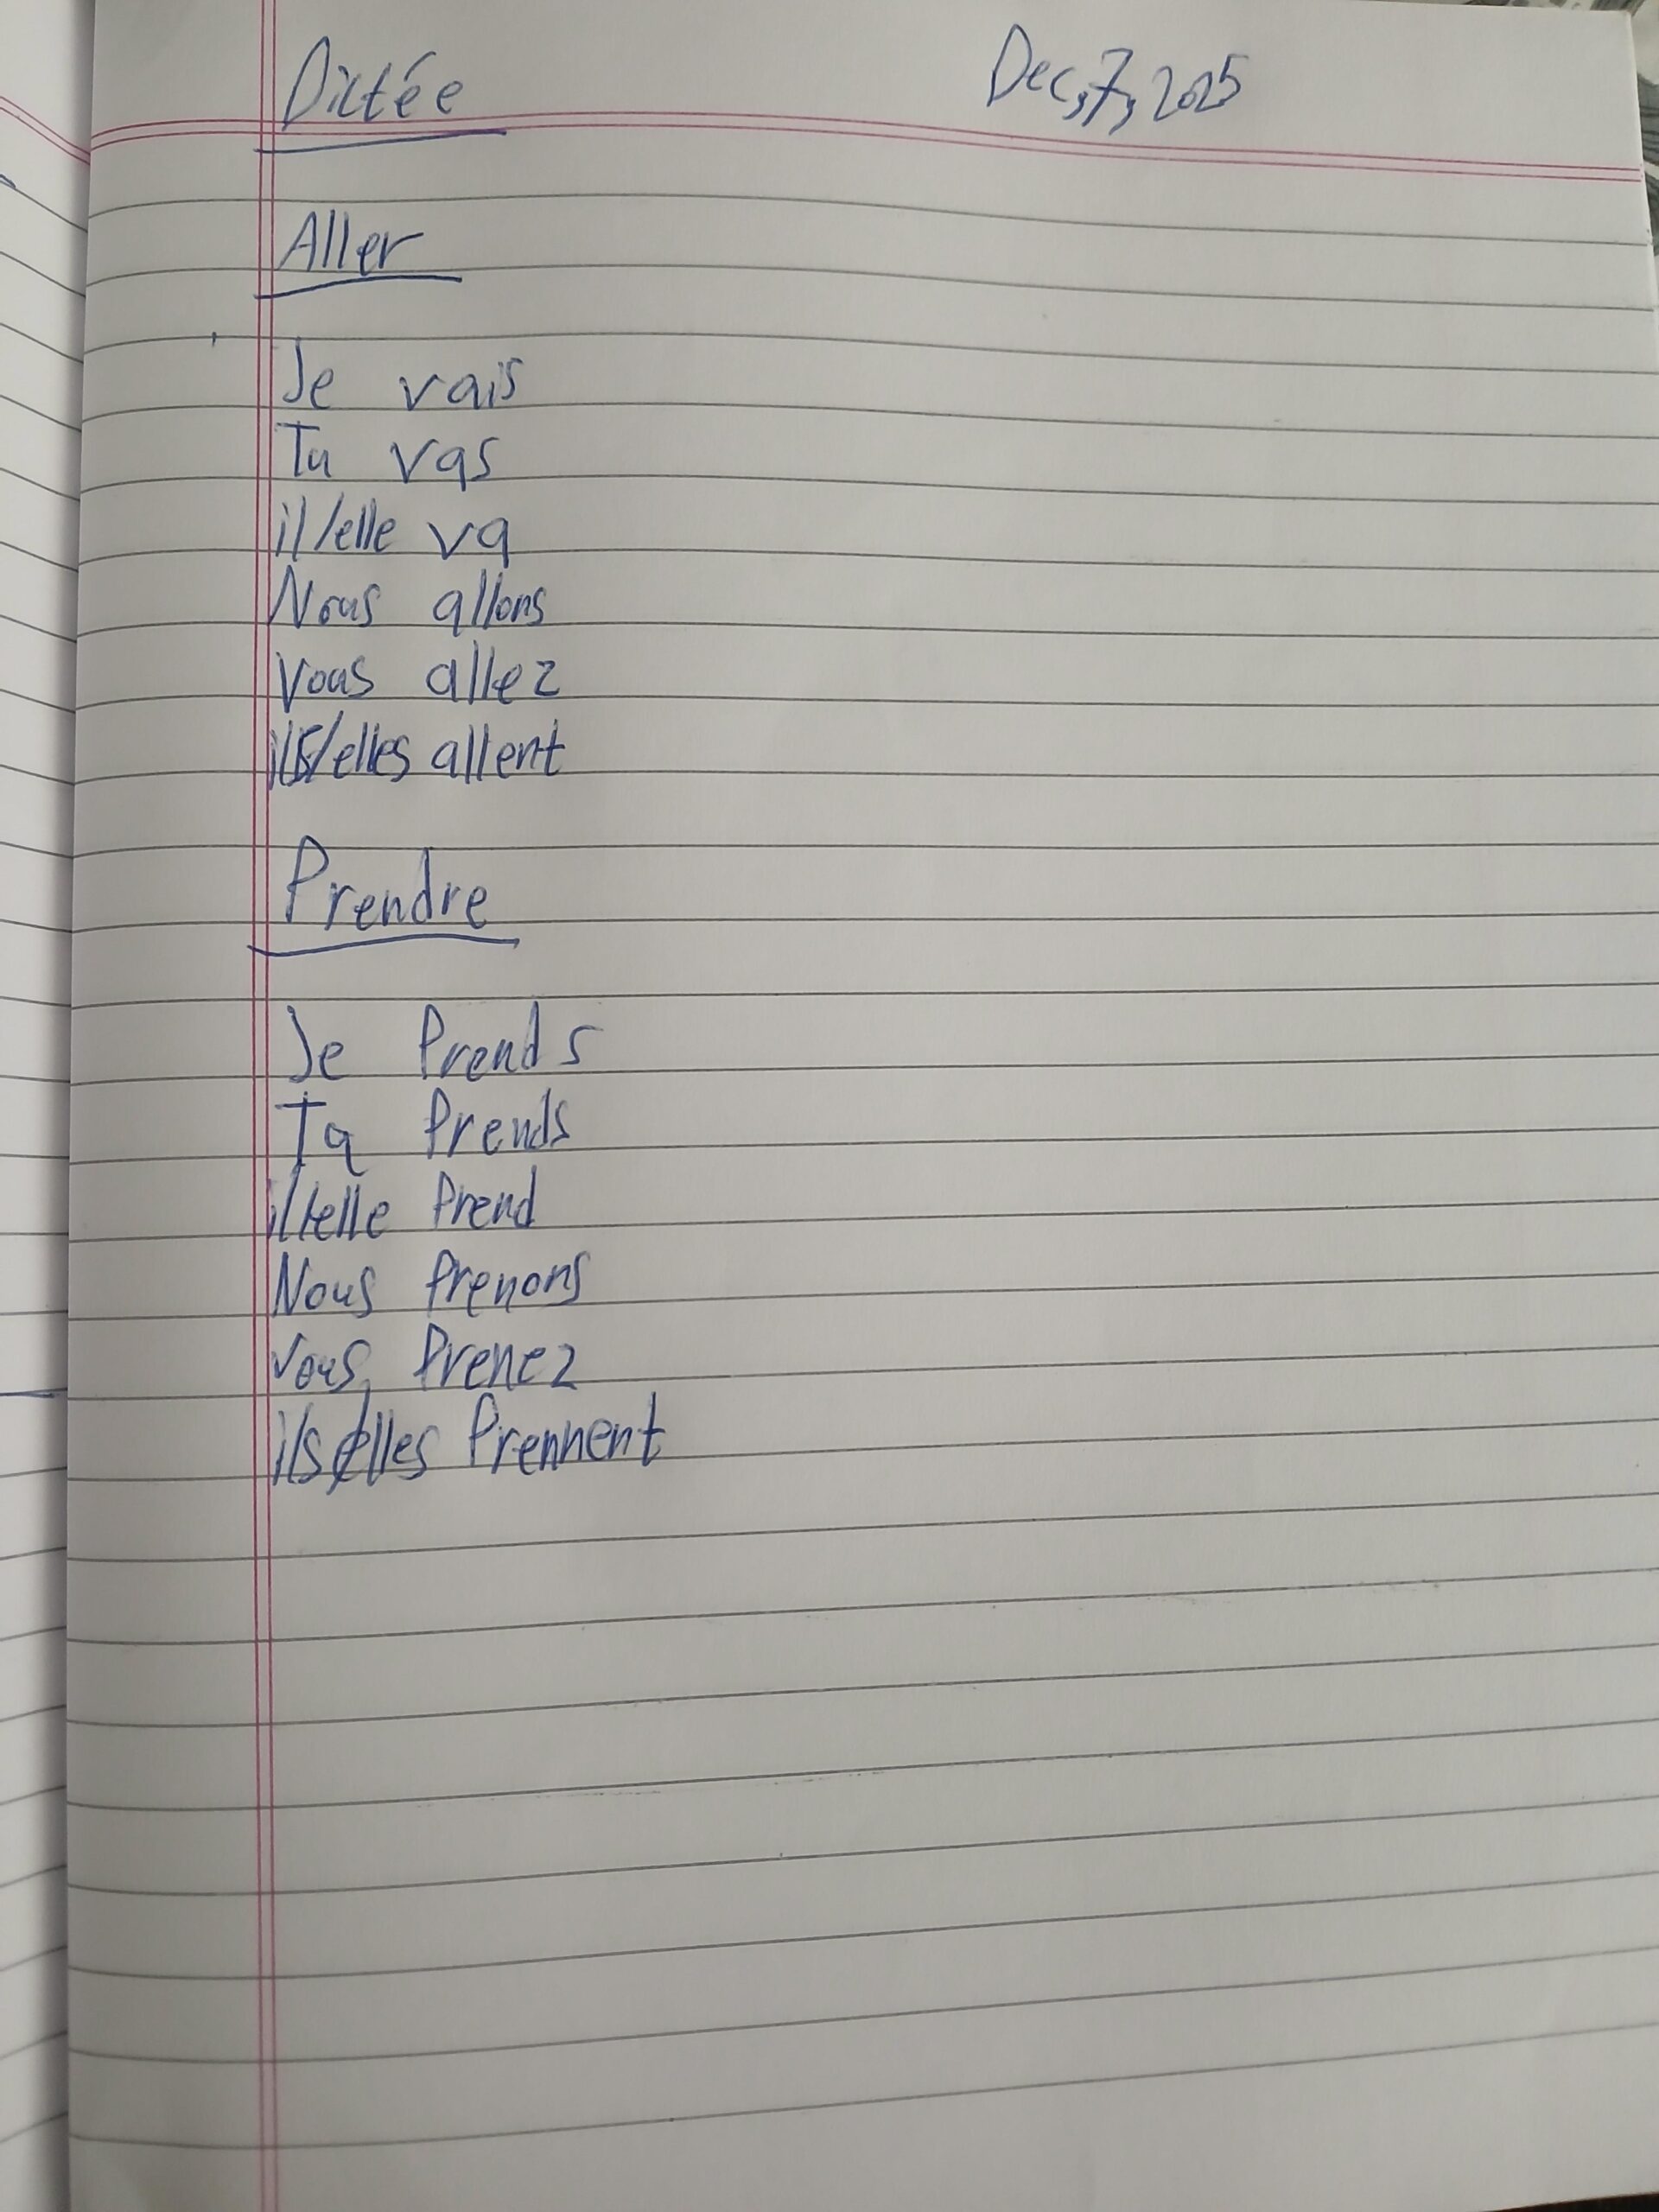 Dictée Dec,7,2025
Aller
Je vais
Tu vas
il/elle va
Nous allons
Vous allez
ils/elles allent
Prendre
Je Prends
Tu Prends
il/elle Prend
Nous Prenons
Vous Prenez
ils/elles Prennent